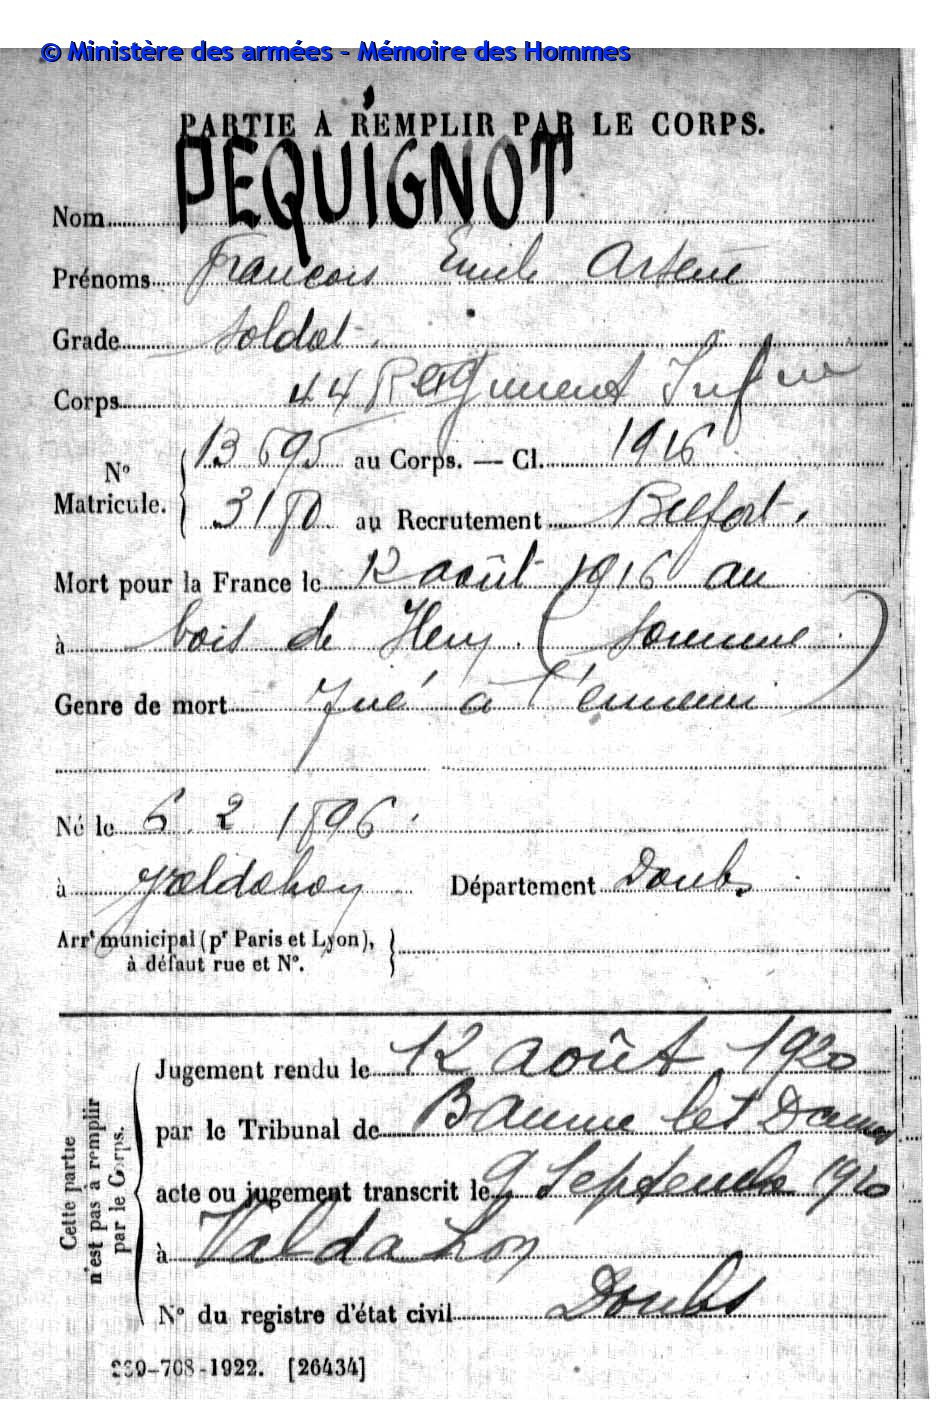 © Ministère des armées - Mémoire des Hommes
PARTIE A REMPLIR PAR LE CORPS.
Nom PEQUIGNOT
Prénoms François Emile Arsène
Grade Soldat
Corps 44 Regiment Infrie
N° Matricule. 13695 au Corps. — Cl. 1916
3180 au Recrutement Belfort.
Mort pour la France le 12 août 1916 au
à bois de Hem (Somme)
Genre de mort Tué à l'ennemi
Né le 6 2 1896
à Valdahon Département Doubs
Arrt municipal (pr Paris et Lyon),
à défaut rue et N°.
Cette partie n'est pas à remplir par le Corps.
Jugement rendu le 12 août 1920
par le Tribunal de Baume les Dames
acte ou jugement transcrit le 9 Septembre 1920
à Valdahon
N° du registre d'état civil Doubs
-708-1922. [26434]